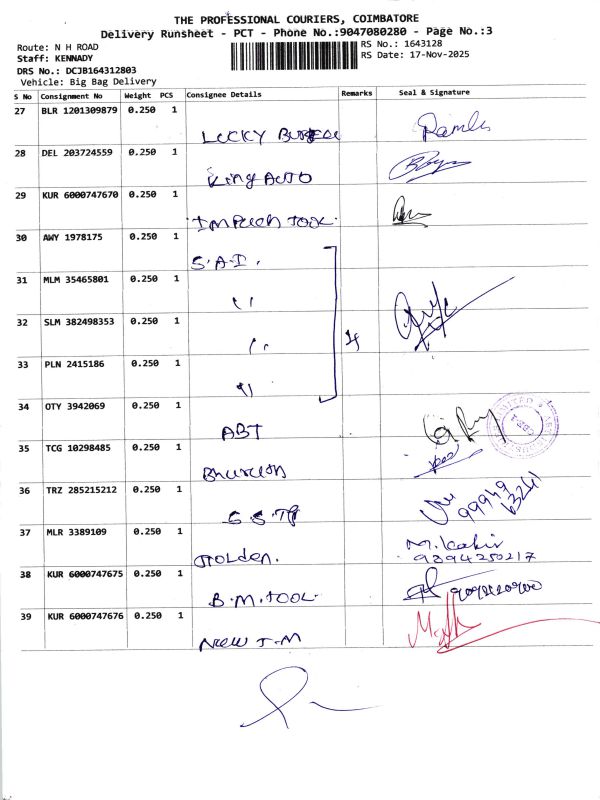 THE PROFESSIONAL COURIERS, COIMBATORE
Delivery Runsheet - PCT - Phone No.:9047080280 - Page No.:3
Route: N H ROAD
Staff: KENNADY
DRS No.: DCJB164312803
Vehicle: Big Bag Delivery
RS No.: 1643128
RS Date: 17-Nov-2025
S No Consignment No Weight PCS Consignee Details Remarks Seal & Signature
27 BLR 1201309879 0.250 1
LUCKY
28 DEL 203724559 0.250 1
King AUTO
29 KUR 6000747670 0.250 1
TOOL
30 AWY 1978175 0.250 1
S.A.I.
31 MLM 35465801 0.250 1
"
32 SLM 382498353 0.250 1
" 4
33 PLN 2415186 0.250 1
"
34 OTY 3942069 0.250 1
ABT
35 TCG 10298485 0.250 1
36 TRZ 285215212 0.250 1
99949 63241
37 MLR 3389109 0.250 1
Golden. M. Kabir
9894250217
38 KUR 6000747675 0.250 1
B.M.TOOL
39 KUR 6000747676 0.250 1
New J.M